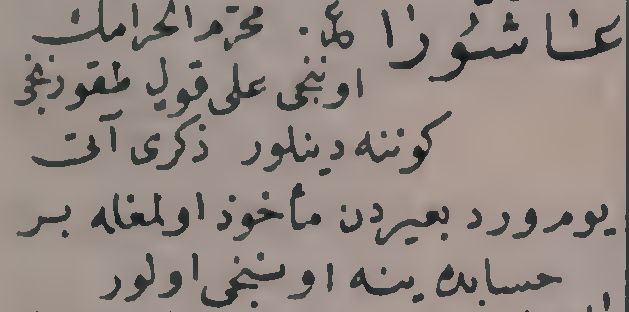 عاشورا ع. محرم الحرامك
اوننجى على قول طقوزنجى
كوننه دينلور ذكرى آتى
يوم ورد بعيردن مأخوذ اولمغله بر
حسابده ينه اوننجى اولور